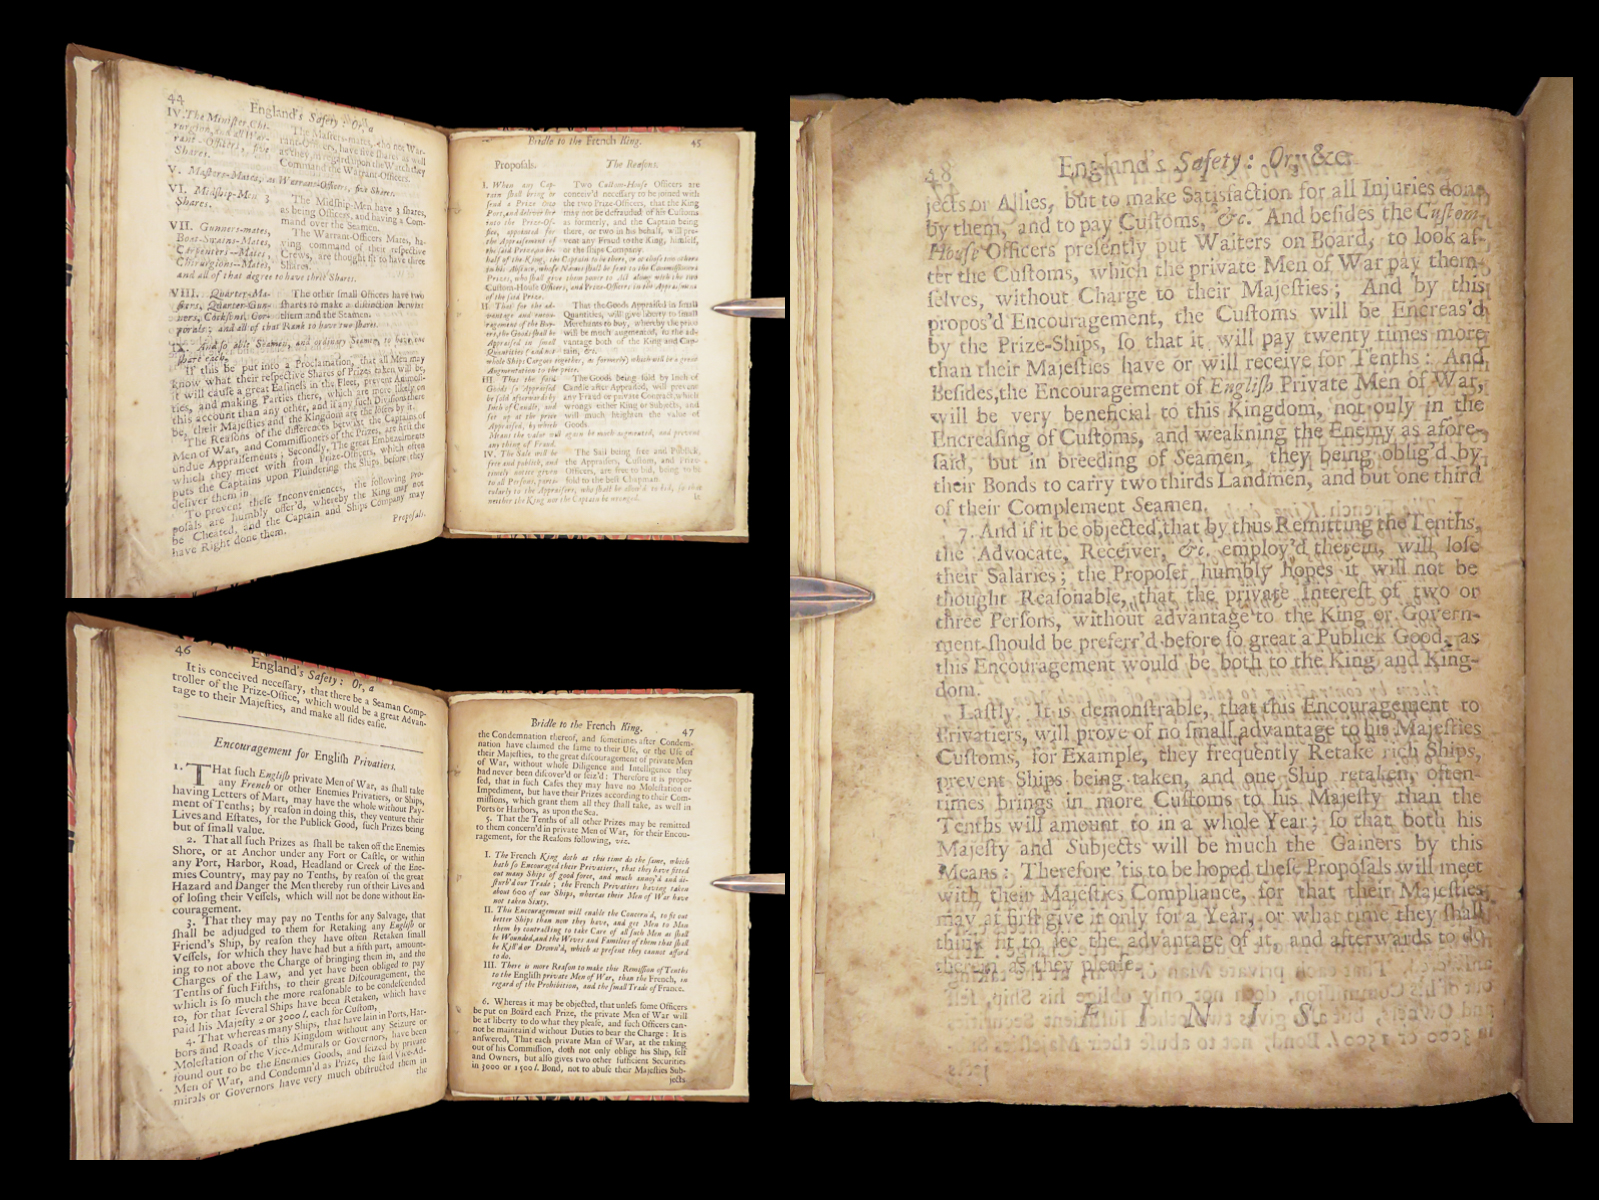 44
England's Safety: Or, a
IV. The Minister, Chi-
rurgion, and all War-
rant-Officers, five
Shares.
The Masters-mates, who not War-
rant-Officers, have five shares as well
as they, in regard upon the Watch they
Command the Warrant-Officers.
V. Masters-Mates, as Warrant-Officers, five Shares.
VI. Midship-Men 3
Shares.
The Midship-Men have 3 shares,
as being Officers, and having a Com-
mand over the Seamen.
VII. Gunners-mates,
Boat-Swains-Mates,
Carpenters--Mates,
Chirurgions--Mates,
and all of that degree to have three Shares.
The Warrant-Officers Mates, ha-
ving command of their respective
Crews, are thought fit to have three
Shares.
VIII. Quarter-Ma-
sters, Quarter-Gun-
ners, Cockswns, Cor-
porals; and all of that Rank to have two shares.
The other small Officers have two
shares to make a distinction betwixt
them and the Seamen.
IX. And so able Seamen, and ordinary Seamen, to have one
share each.
If this be put into a Proclamation, that all Men may
know what their respective Shares of Prizes taken will be,
it will cause a great Easiness in the Fleet, prevent Animosi-
ties, and making Parties there, which are more likely on
this account than any other, and if any such Divisions there
be, their Majesties and the Kingdom are the losers by it.
The Reasons of the differences betwixt the Captains of
Men of War, and Commissioners of the Prizes, are first the
undue Appraisements; Secondly, The great Embezelments
which they meet with from Prize-Officers, which often
puts the Captains upon Plundering the Ships before they
deliver them in.
To prevent these Inconveniences, the following Pro-
posals are humbly offer'd, whereby the King may not
be Cheated, and the Captain and Ships Company may
have Right done them.
Proposals.
Bridle to the French King.
45
Proposals.
The Reasons.
I. When any Cap-
tain shall bring or
send a Prize into
Port, and deliver her
into the Prize-Of-
fice, appointed for
the Appraisement of
the said Prize on be-
half of the King, the Captain to be there, or to abuse two others
in his Absence, whose Names shall be sent to the Commissioners
Prizes, who shall give them power to Act along with the two
Custom-House Officers, and Prize-Officers in the Appraisement
of the said Prize.
Two Custom-House Officers are
conceiv'd necessary to be joined with
the two Prize-Officers, that the King
may not be defrauded of his Customs
as formerly, and the Captain being
there, or two in his behalf, will pre-
vent any Fraud to the King, himself,
or the Ships Company.
II. That for the ad-
vantage and encou-
ragement of the Buy-
ers, the Goods shall be
Appraised in small
Quantities (and not
whole Ships Cargoes together, as formerly) which will be a great
Augmentation to the price.
That the Goods Appraised in small
Quantities, will give liberty to small
Merchants to buy, whereby the price
will be much augmented, to the ad-
vantage both of the King and Cap-
tain, &c.
III. That the said
Goods so Appraised
be sold afterwards by
Inch of Candle, and
set up at the price
Appraised, by which
Means the value will again be much augmented, and prevent
any thing of Fraud.
The Goods being sold by Inch of
Candle after Appraised, will prevent
any Fraud or private Contract, which
wrongs either King or Subjects, and
will much heighten the value of
Goods.
IV. The Sale will be
free and publick, and
timely notice given
to all Persons, parti-
cularly to the Appraisers, who shall be allow'd to bid, so that
neither the King nor the Captain be wronged.
The Sail being free and Publick,
the Appraisers, Custom, and Prize-
Officers, are free to bid, being to be
sold to the best Chapman.
It
46
England's Safety: Or, a
It is conceived necessary, that there be a Seaman Comp-
troller of the Prize-Office, which would be a great Advan-
tage to their Majesties, and make all sides easie.
Encouragement for English Privatiers.
1. THat such English private Men of War, as shall take
any French or other Enemies Privatiers, or Ships,
having Letters of Mart, may have the whole without Pay-
ment of Tenths; by reason in doing this, they venture their
Lives and Estates, for the Publick Good, such Prizes being
but of small value.
2. That all such Prizes as shall be taken off the Enemies
Shore, or at Anchor under any Port or Castle, or within
any Port, Harbor, Road, Headland or Creek of the Ene-
mies Country, may pay no Tenths, by reason of the great
Hazard and Danger the Men thereby run of their Lives and
of losing their Vessels, which will not be done without En-
couragement.
3. That they may pay no Tenths for any Salvage, that
shall be adjudged to them for Retaking any English or
Friend's Ship, by reason they have often Retaken small
Vessels, for which they have had but a fifth part, amount-
ing to not above the Charge of bringing them in, and the
Charges of the Law, and yet have been obliged to pay
Tenths of such Fifths, to their great Discouragement, the
which is so much the more reasonable to be condescended
to, for that several Ships have been Retaken, which have
paid his Majesty 2 or 3000 l. each for Custom,
4. That whereas many Ships, that have lain in Ports, Har-
bors and Roads of this Kingdom without any Seizure or
Molestation of the Vice-Admirals or Governors, have been
found out to be the Enemies Goods, and seized by private
Men of War, and Condemn'd as Prize, the said Vice-Ad-
mirals or Governors have very much obstructed them in
the
Bridle to the French King.
47
the Condemnation thereof, and sometimes after Condem-
nation have claimed the same to their Use, or the Use of
their Majesties, to the great discouragement of private Men
of War, without whose Diligence and Intelligence they
had never been discover'd or seiz'd: Therefore it is propo-
sed, that in such Cases they may have no Molestation or
Impediment, but have their Prizes according to their Com-
missions, which grant them all they shall take, as well in
Ports or Harbors, as upon the Sea.
5. That the Tenths of all other Prizes may be remitted
to them concern'd in private Men of War, for their Encou-
ragement, for the Reasons following, viz.
I. The French King doth at this time do the same, which
hath so Encouraged their Privatiers, that they have fitted
out many Ships of good force, and much annoy'd and di-
sturb'd our Trade; the French Privatiers having taken
about 600 of our Ships, whereas their Men of War have
not taken Sixty.
II. This Encouragement will enable the Concern'd, to fit out
better Ships than now they have, and get Men to Man
them by contracting to take Care of all such Men as shall
be Wounded, and the Wives and Families of them that shall
be Kill'd or Drown'd, which at present they cannot afford
to do.
III. There is more Reason to make this Remission of Tenths
to the English private Men of War, than the French, in
regard of the Prohibition, and the small Trade of France.
6. Whereas it may be objected, that unless some Officers
be put on Board each Prize, the private Men of War will
be at liberty to do what they please, and such Officers can-
not be maintain'd without Duties to bear the Charge: It is
answered, That each private Man of War, at the taking
out of his Commission, doth not only oblige his Ship, self
and Owners, but also gives two other sufficient Securities
in 3000 or 1500 l. Bond, not to abuse their Majesties Sub-
jects
48
England's Safety: Or, &c.
jects or Allies, but to make Satisfaction for all Injuries done
by them, and to pay Customs, &c. And besides the Custom-
House Officers presently put Waiters on Board, to look af-
ter the Customs, which the private Men of War pay them-
selves, without Charge to their Majesties; And by this
propos'd Encouragement, the Customs will be Encreas'd
by the Prize-Ships, so that it will pay twenty times more
than their Majesties have or will receive for Tenths: And
Besides, the Encouragement of English Private Men of War,
will be very beneficial to this Kingdom, not only in the
Encreasing of Customs, and weakning the Enemy as afore-
said, but in breeding of Seamen, they being oblig'd by
their Bonds to carry two thirds Landmen, and but one third
of their Complement Seamen.
7. And if it be objected, that by thus Remitting the Tenths,
the Advocate, Receiver, &c. employ'd therein, will lose
their Salaries; the Proposer humbly hopes it will not be
thought Reasonable, that the private Interest of two or
three Persons, without advantage to the King or Govern-
ment should be preferr'd before so great a Publick Good, as
this Encouragement would be both to the King and King-
dom.
Lastly. It is demonstrable, that this Encouragement to
Privatiers, will prove of no small advantage to his Majesties
Customs, for Example, they frequently Retake rich Ships,
prevent Ships being taken, and one Ship retaken, often-
times brings in more Customs to his Majesty than the
Tenths will amount to in a whole Year; so that both his
Majesty and Subjects will be much the Gainers by this
Means: Therefore 'tis to be hoped these Proposals will meet
with their Majesties Compliance, for that their Majesties
may at first give it only for a Year, or what time they shall
think fit to see the advantage of it, and afterwards to do
therein as they please.
FINIS